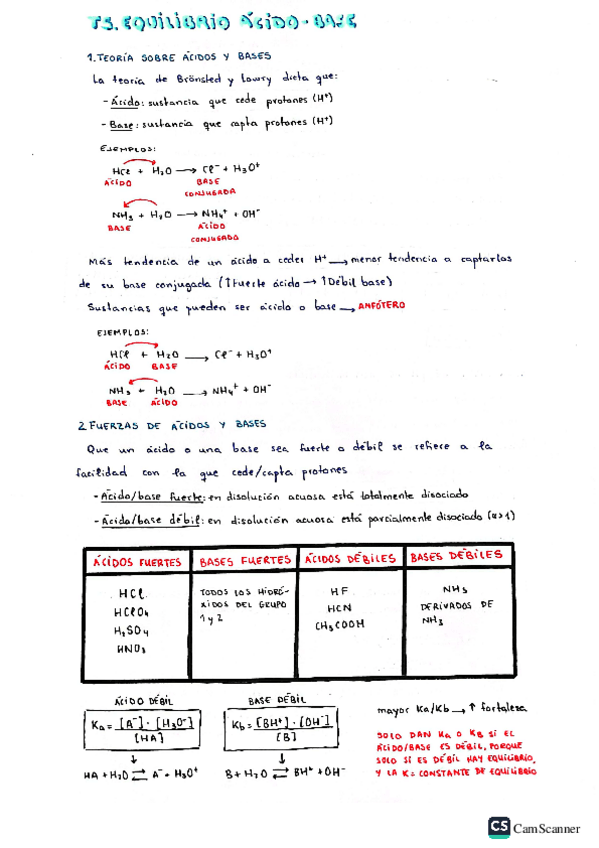 T5. EQUILIBRIO ÁCIDO-BASE
1. TEORÍA SOBRE ÁCIDOS Y BASES
La teoría de Brönsted y Lowry dicta que:
- Ácido: sustancia que cede protones (H⁺)
- Base: sustancia que capta protones (H⁺)
EJEMPLOS:
HCl + H₂O → Cl⁻ + H₃O⁺
ÁCIDO BASE CONJUGADA
NH₃ + H₂O → NH₄⁺ + OH⁻
BASE ÁCIDO CONJUGADA
Más tendencia de un ácido a ceder H⁺ → menor tendencia a captarlos
de su base conjugada (↑Fuerte ácido → ↑Débil base)
Sustancias que pueden ser ácido o base → ANFÓTERO
EJEMPLOS:
HCl + H₂O → Cl⁻ + H₃O⁺
ÁCIDO BASE
NH₃ + H₂O → NH₄⁺ + OH⁻
BASE ÁCIDO
2. FUERZAS DE ÁCIDOS Y BASES
Que un ácido o una base sea fuerte o débil se refiere a la
facilidad con la que cede/capta protones
- Ácido/base fuerte: en disolución acuosa está totalmente disociado
- Ácido/base débil: en disolución acuosa está parcialmente disociado (α>1)
ÁCIDOS FUERTES BASES FUERTES ÁCIDOS DÉBILES BASES DÉBILES
HCl
HClO₄
H₂SO₄
HNO₃
TODOS LOS HIDRÓ-
XIDOS DEL GRUPO
1 y 2
HF
HCN
CH₃COOH
NH₃
DERIVADOS DE
NH₃
ÁCIDO DÉBIL
Ka = [A⁻]·[H₃O⁺] / [HA]
↓
HA + H₂O ⇌ A⁻ + H₃O⁺
BASE DÉBIL
Kb = [BH⁺]·[OH⁻] / [B]
↓
B + H₂O ⇌ BH⁺ + OH⁻
mayor Ka/Kb → ↑ fortaleza
SOLO DAN Ka O Kb SI EL
ÁCIDO/BASE ES DÉBIL, PORQUE
SOLO SI ES DÉBIL HAY EQUILIBRIO,
Y LA K = CONSTANTE DE EQUILIBRIO
CS CamScanner